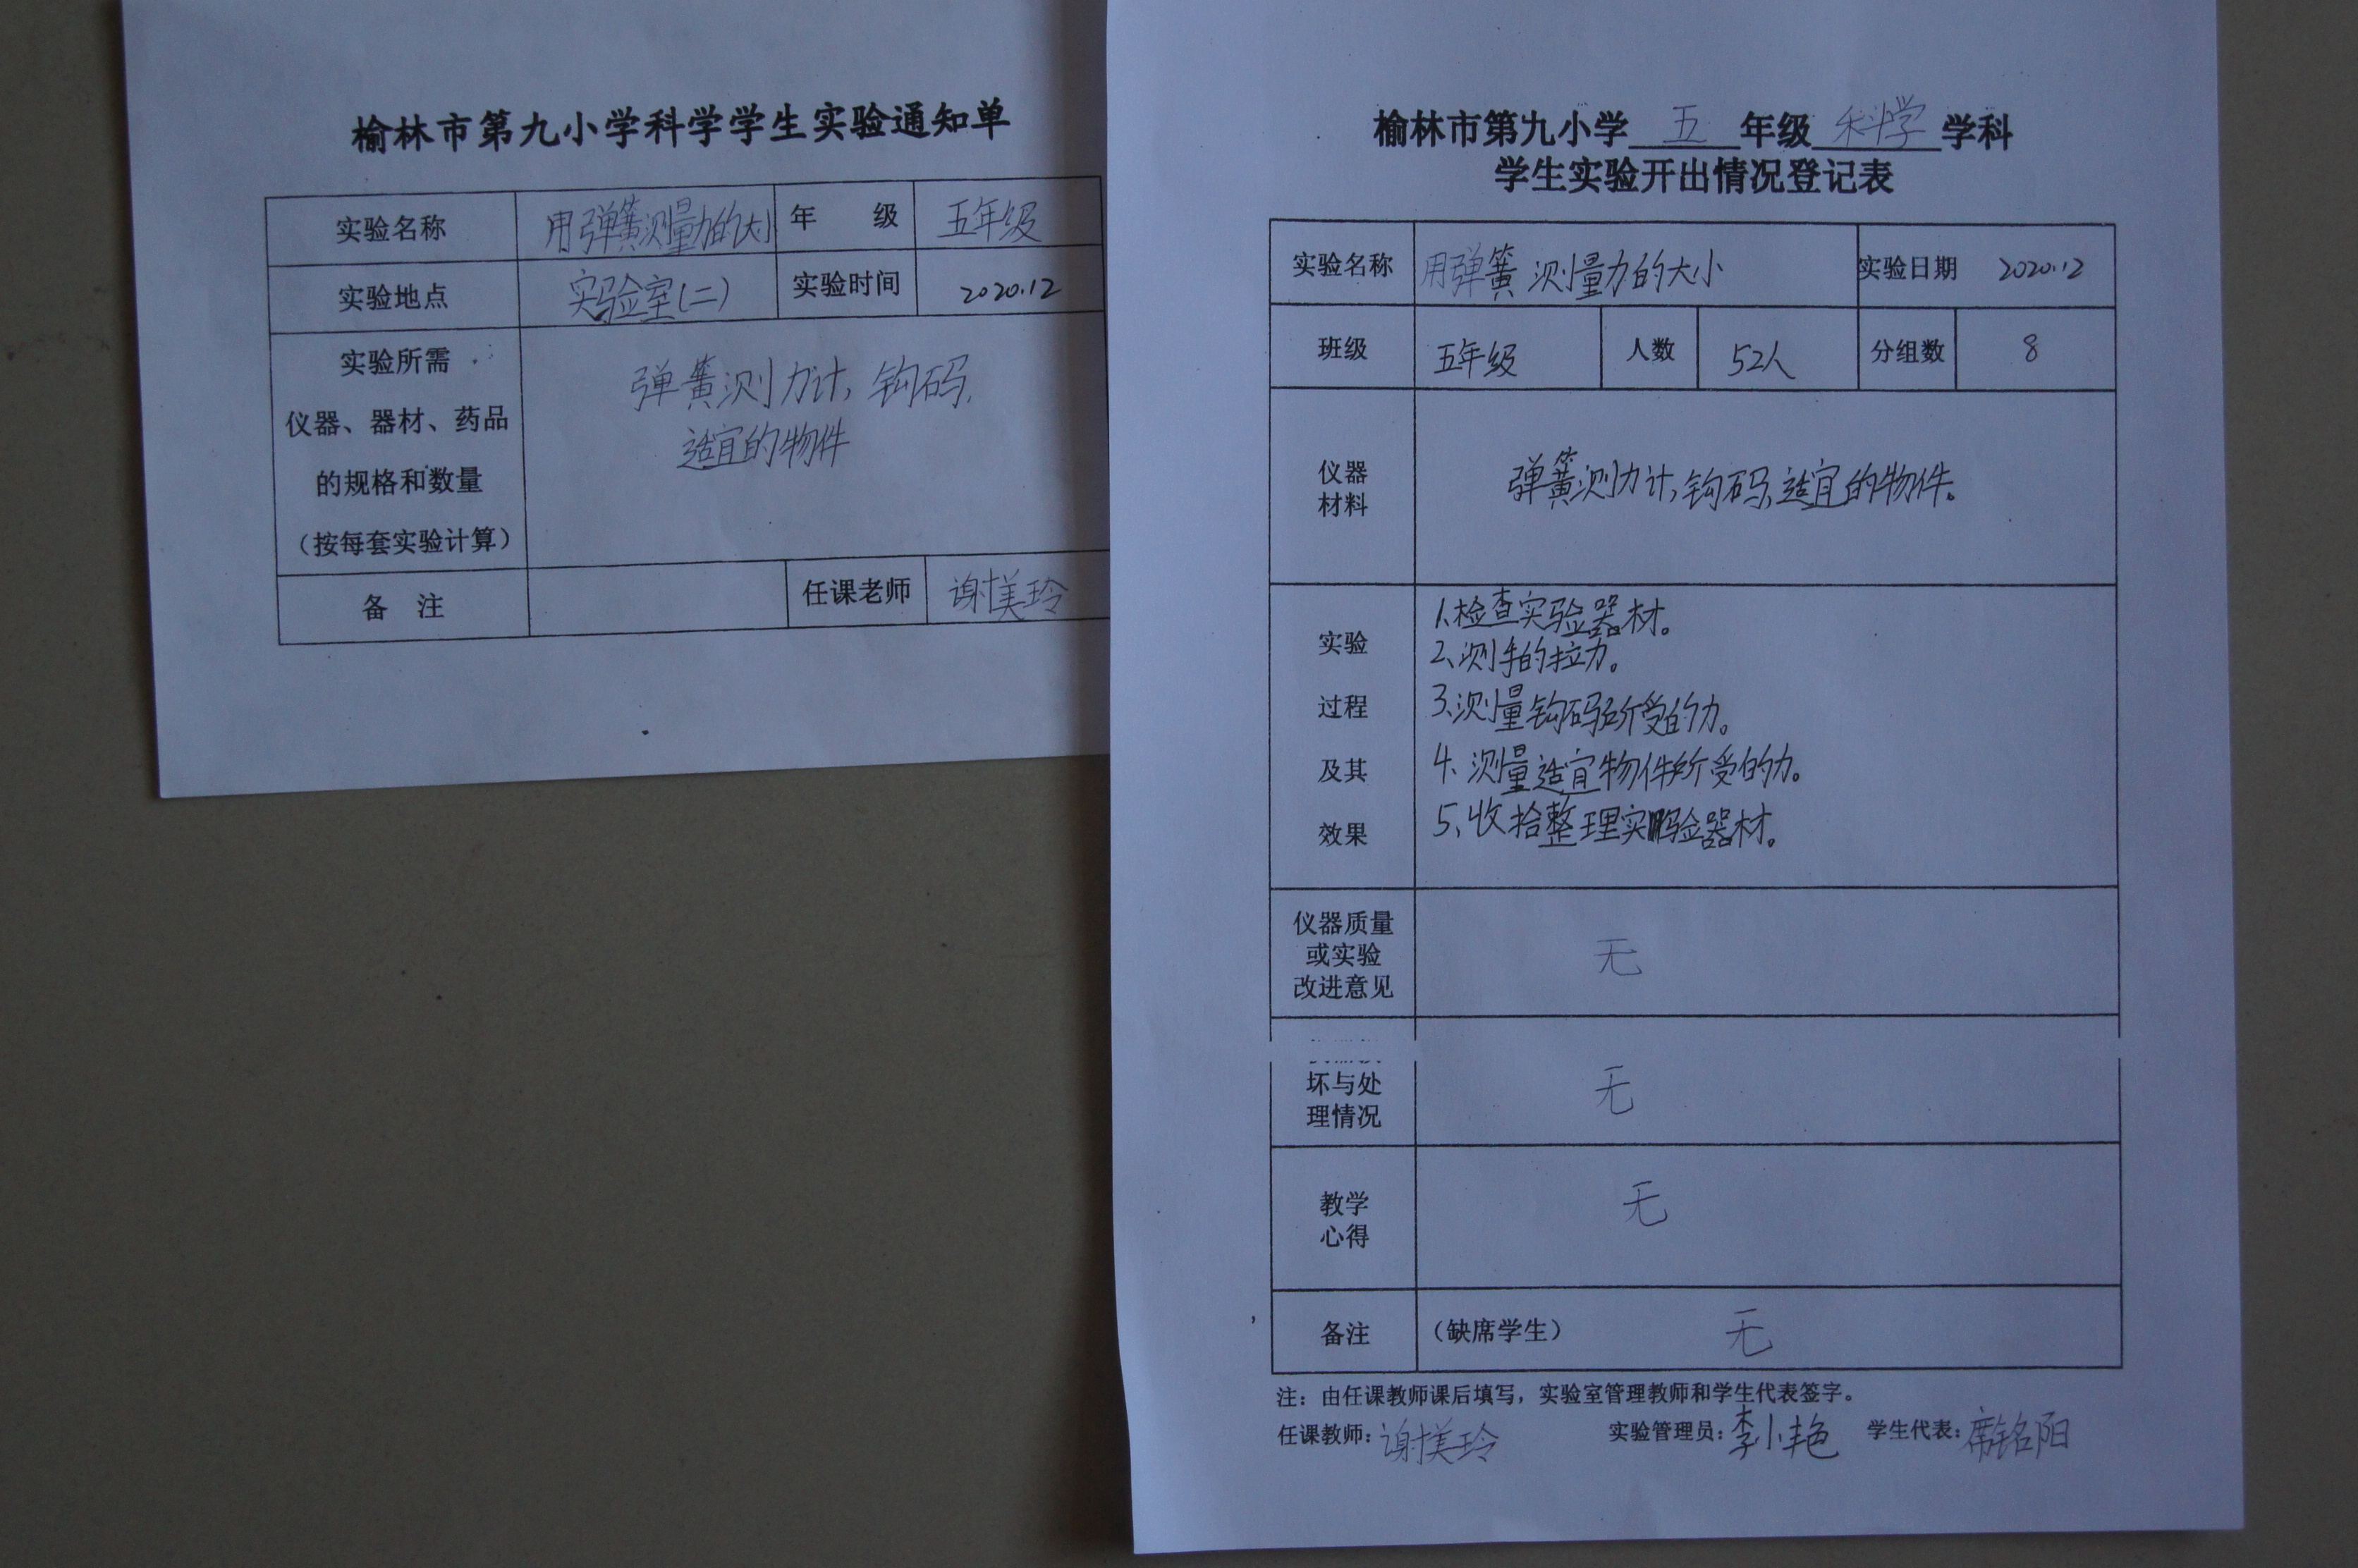 榆林市第九小学科学学生实验通知单
实验名称 用弹簧测量力的大小 年 级 五年级
实验地点 实验室(二) 实验时间 2020.12
实验所需
仪器、器材、药品
的规格和数量
（按每套实验计算）
弹簧测力计, 钩码,
适宜的物件
备 注 任课老师 谢美玲
榆林市第九小学 五 年级 科学 学科
学生实验开出情况登记表
实验名称 用弹簧测量力的大小 实验日期 2020.12
班级 五年级 人数 52人 分组数 8
仪器
材料
弹簧测力计,钩码,适宜的物件。
实验
过程
及其
效果
1.检查实验器材。
2、测手的拉力。
3、测量钩码所受的力。
4、测量适宜物件所受的力。
5、收拾整理实验器材。
仪器质量
或实验
改进意见
无
坏与处
理情况
无
教学
心得
无
备注 （缺席学生） 无
注：由任课教师课后填写，实验室管理教师和学生代表签字。
任课教师：谢美玲 实验管理员：李小艳 学生代表：席铭阳